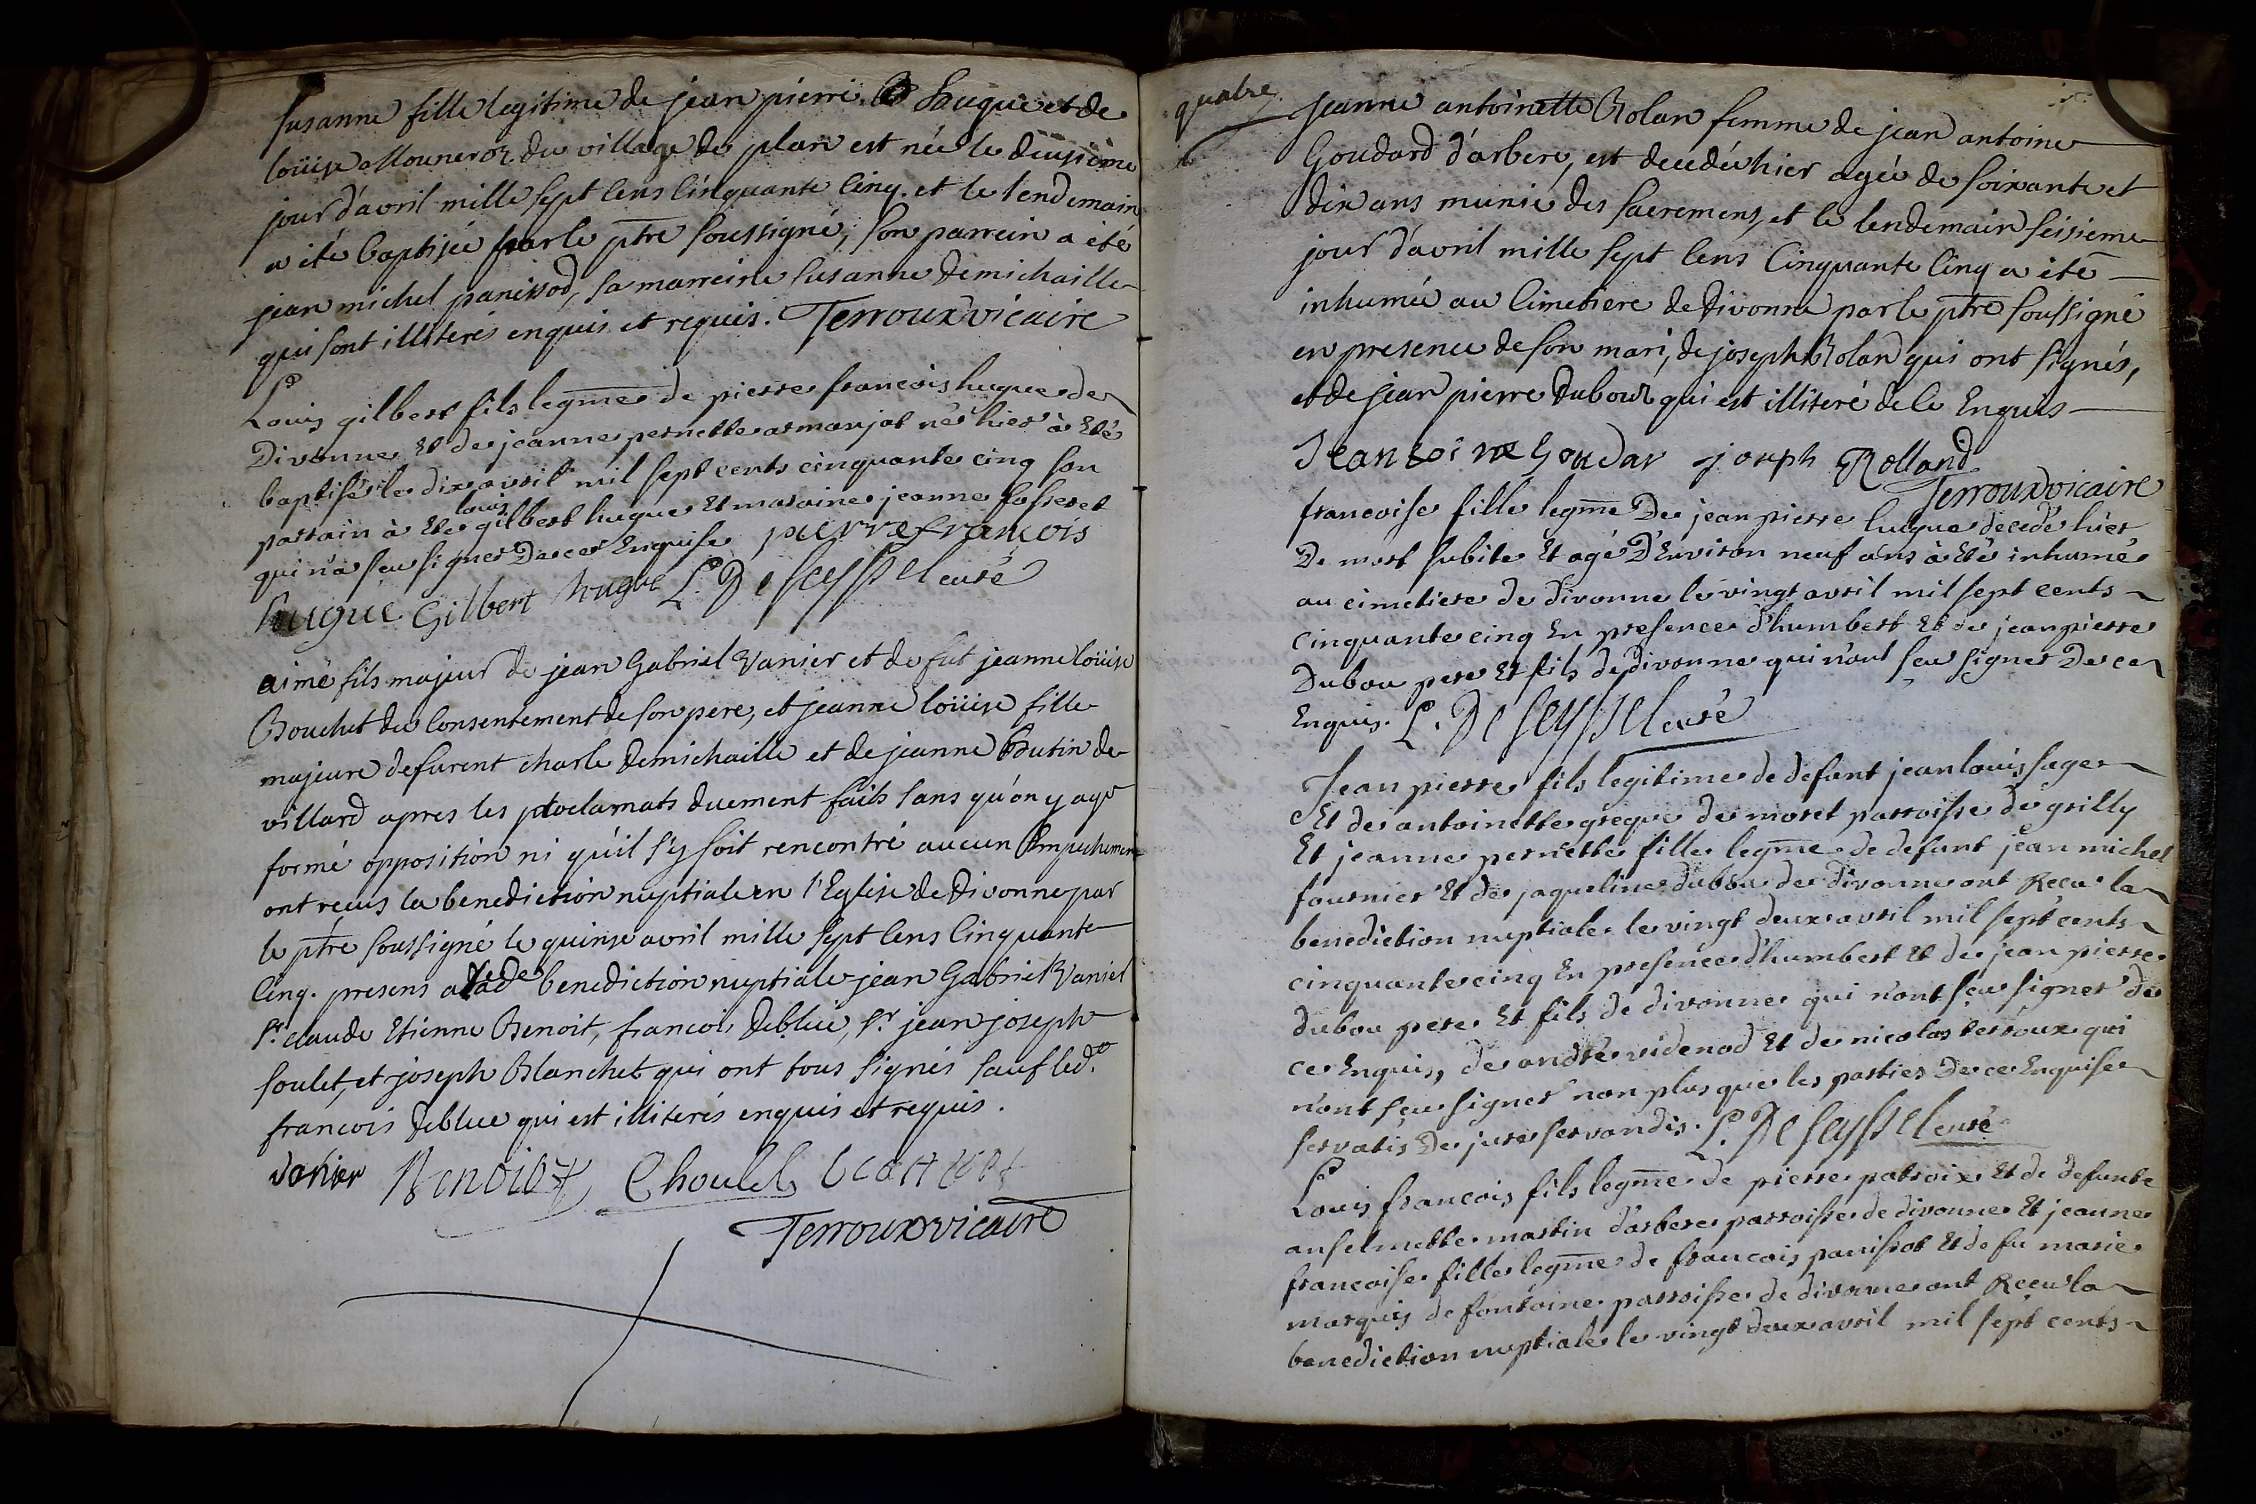 susanne fille legitime de jean pierre hugue et de
loüise Mouneroz du village de plan est née le deusieme
jour d'avril mille sept cens cinquante cinq. et le lendemain
a été baptisée par le ptre soussigné, son parrein a été
jean michel panissod, sa marreine susanne Demichaille
qui sont illiterés enquis et requis. Terroux vicaire
Louis gilbert fils legme de pierre francois hugue de
Divonne Et de jeanne pernette armanjot né hier à Eté
baptisé le dix avril mil sept cents cinquante cinq son
parrain à Ete louis gilbert hugue Et maraine jeanne fosseret
qui n'a sçu signer De ce Enquise pierre françois
hugue Gilbert hugue L. De seyssel curé
aimé fils majeur de jean Gabriel Vanier et de fut jeanne loüise
Bouchet du consentement de son pere, et jeanne loüise fille
majeure de furent charle Demichaille et de jeanne Butin de
villard apres les proclamats duement faits sans qu'on y aye
formé opposition ni qu'il s'y soit rencontré aucun Empechement
ont reçus la benediction nuptiale en l'Eglise de Divonne par
le ptre soussigné le quinse avril mille sept cens cinquante
cinq. presens a lade benediction nuptiale jean Gabriel Vanier
sr. claude Etienne Benoit, francois deblüe, sr. jean joseph
soulet, et joseph Blanchet qui ont tous signés sauf led.
francois deblue qui est illiterés enquis et requis.
vanier Benoit Choulet
Terroux vicaire
quatre
jeanne antoinette Rolan femme de jean antoine
Goudard d'arbere, est decedée hier agée de soixante et
dix ans munie des sacremens, et le lendemain seisieme
jour d'avril mille sept cens cinquante cinq a été
inhumée au cimetiere de divonne par le ptre soussigné
en presence de son mari, de joseph Rolan qui ont signés,
et de jean pierre Dubout qui est illiteré de ce Enquis
Jean toine Goudar joseph Rolland
Terroux vicaire
francoise fille legme De jean pierre hugue decedé hier
De mort subite Et agé D'Environ neuf ans à Eté inhumé
au cimetiere de divonne le vingt avril mil sept cents
cinquante cinq En presence d'humbert Et de jean pierre
Dubou pere Et fils de divonne qui n'ont sçu signer De ce
Enquis. L. De seyssel curé
Jean pierre fils legitime de defunt jean louis sage
Et de antoinette greque de moret parroisse de grilly
Et jeanne pernette fille legme de defunt jean michel
fournier Et de jaqueline dubou de divonne ont Recu la
benediction nuptiale le vingt deux avril mil sept cents
cinquante cinq En presence d'humbert Et de jean pierre
dubou pere Et fils de divonne qui n'ont sçu signer de
ce Enquis, de andré videnod Et de nicolas terroux qui
n'ont sçu signer non plus que les parties De ce Enquise
servatis De jure servandis. L. De seyssel curé
Louis francois fils legme de pierre patroix Et de defunte
anselmette martin d'arbere parroisse de divonne Et jeanne
francoise fille legme de francois panissot Et de fu marie
marquis de fontaine parroisse de divonne ont Recu la
benediction nuptiale le vingt deux avril mil sept cents